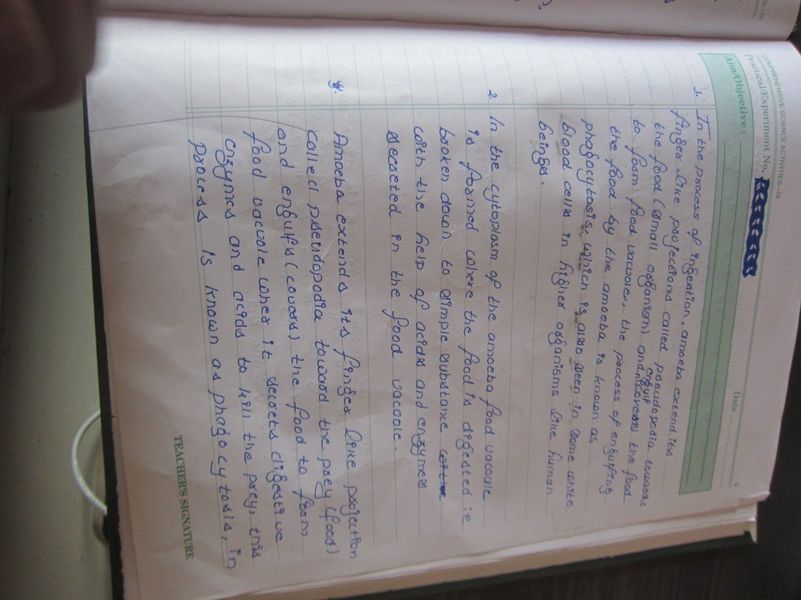 COMPREHENSIVE SCIENCE ACTIVITIES-IX
Practical/Experiment No.
Date
Aim/Objective :
1. In the process of ingestion, amoeba extend its
finger like projections called pseudopodia towards
the food (small organism) and engulf the food
to form food vacuole, the process of engulfing
the food by the amoeba is known as
phagocytosis, which is also seen in some white
blood cells in higher organisms like human
beings.
2. In the cytoplasm of the amoeba food vacuole
is formed where the food is digested ie
broken down to simple substance
with the help of acids and enzymes
secreted in the food vacuole.
Amoeba extends its finger like projection
called pseudopodia toward the prey (food)
and engulfs (covers) the food to form
food vacuole wher it secrets digestive
enzymes and acids to kill the prey. this
process is known as phagocytosis, in
TEACHER'S SIGNATURE